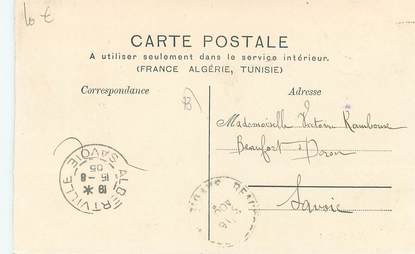 10 €
CARTE POSTALE
A utiliser seulement dans le service intérieur.
(FRANCE ALGÉRIE, TUNISIE)
Correspondance
Adresse
Mademoiselle Victorine Rambour
Beaufort s Doron
Savoie
ALBERTVILLE
SAVOIE
19 *
15 - 8
05